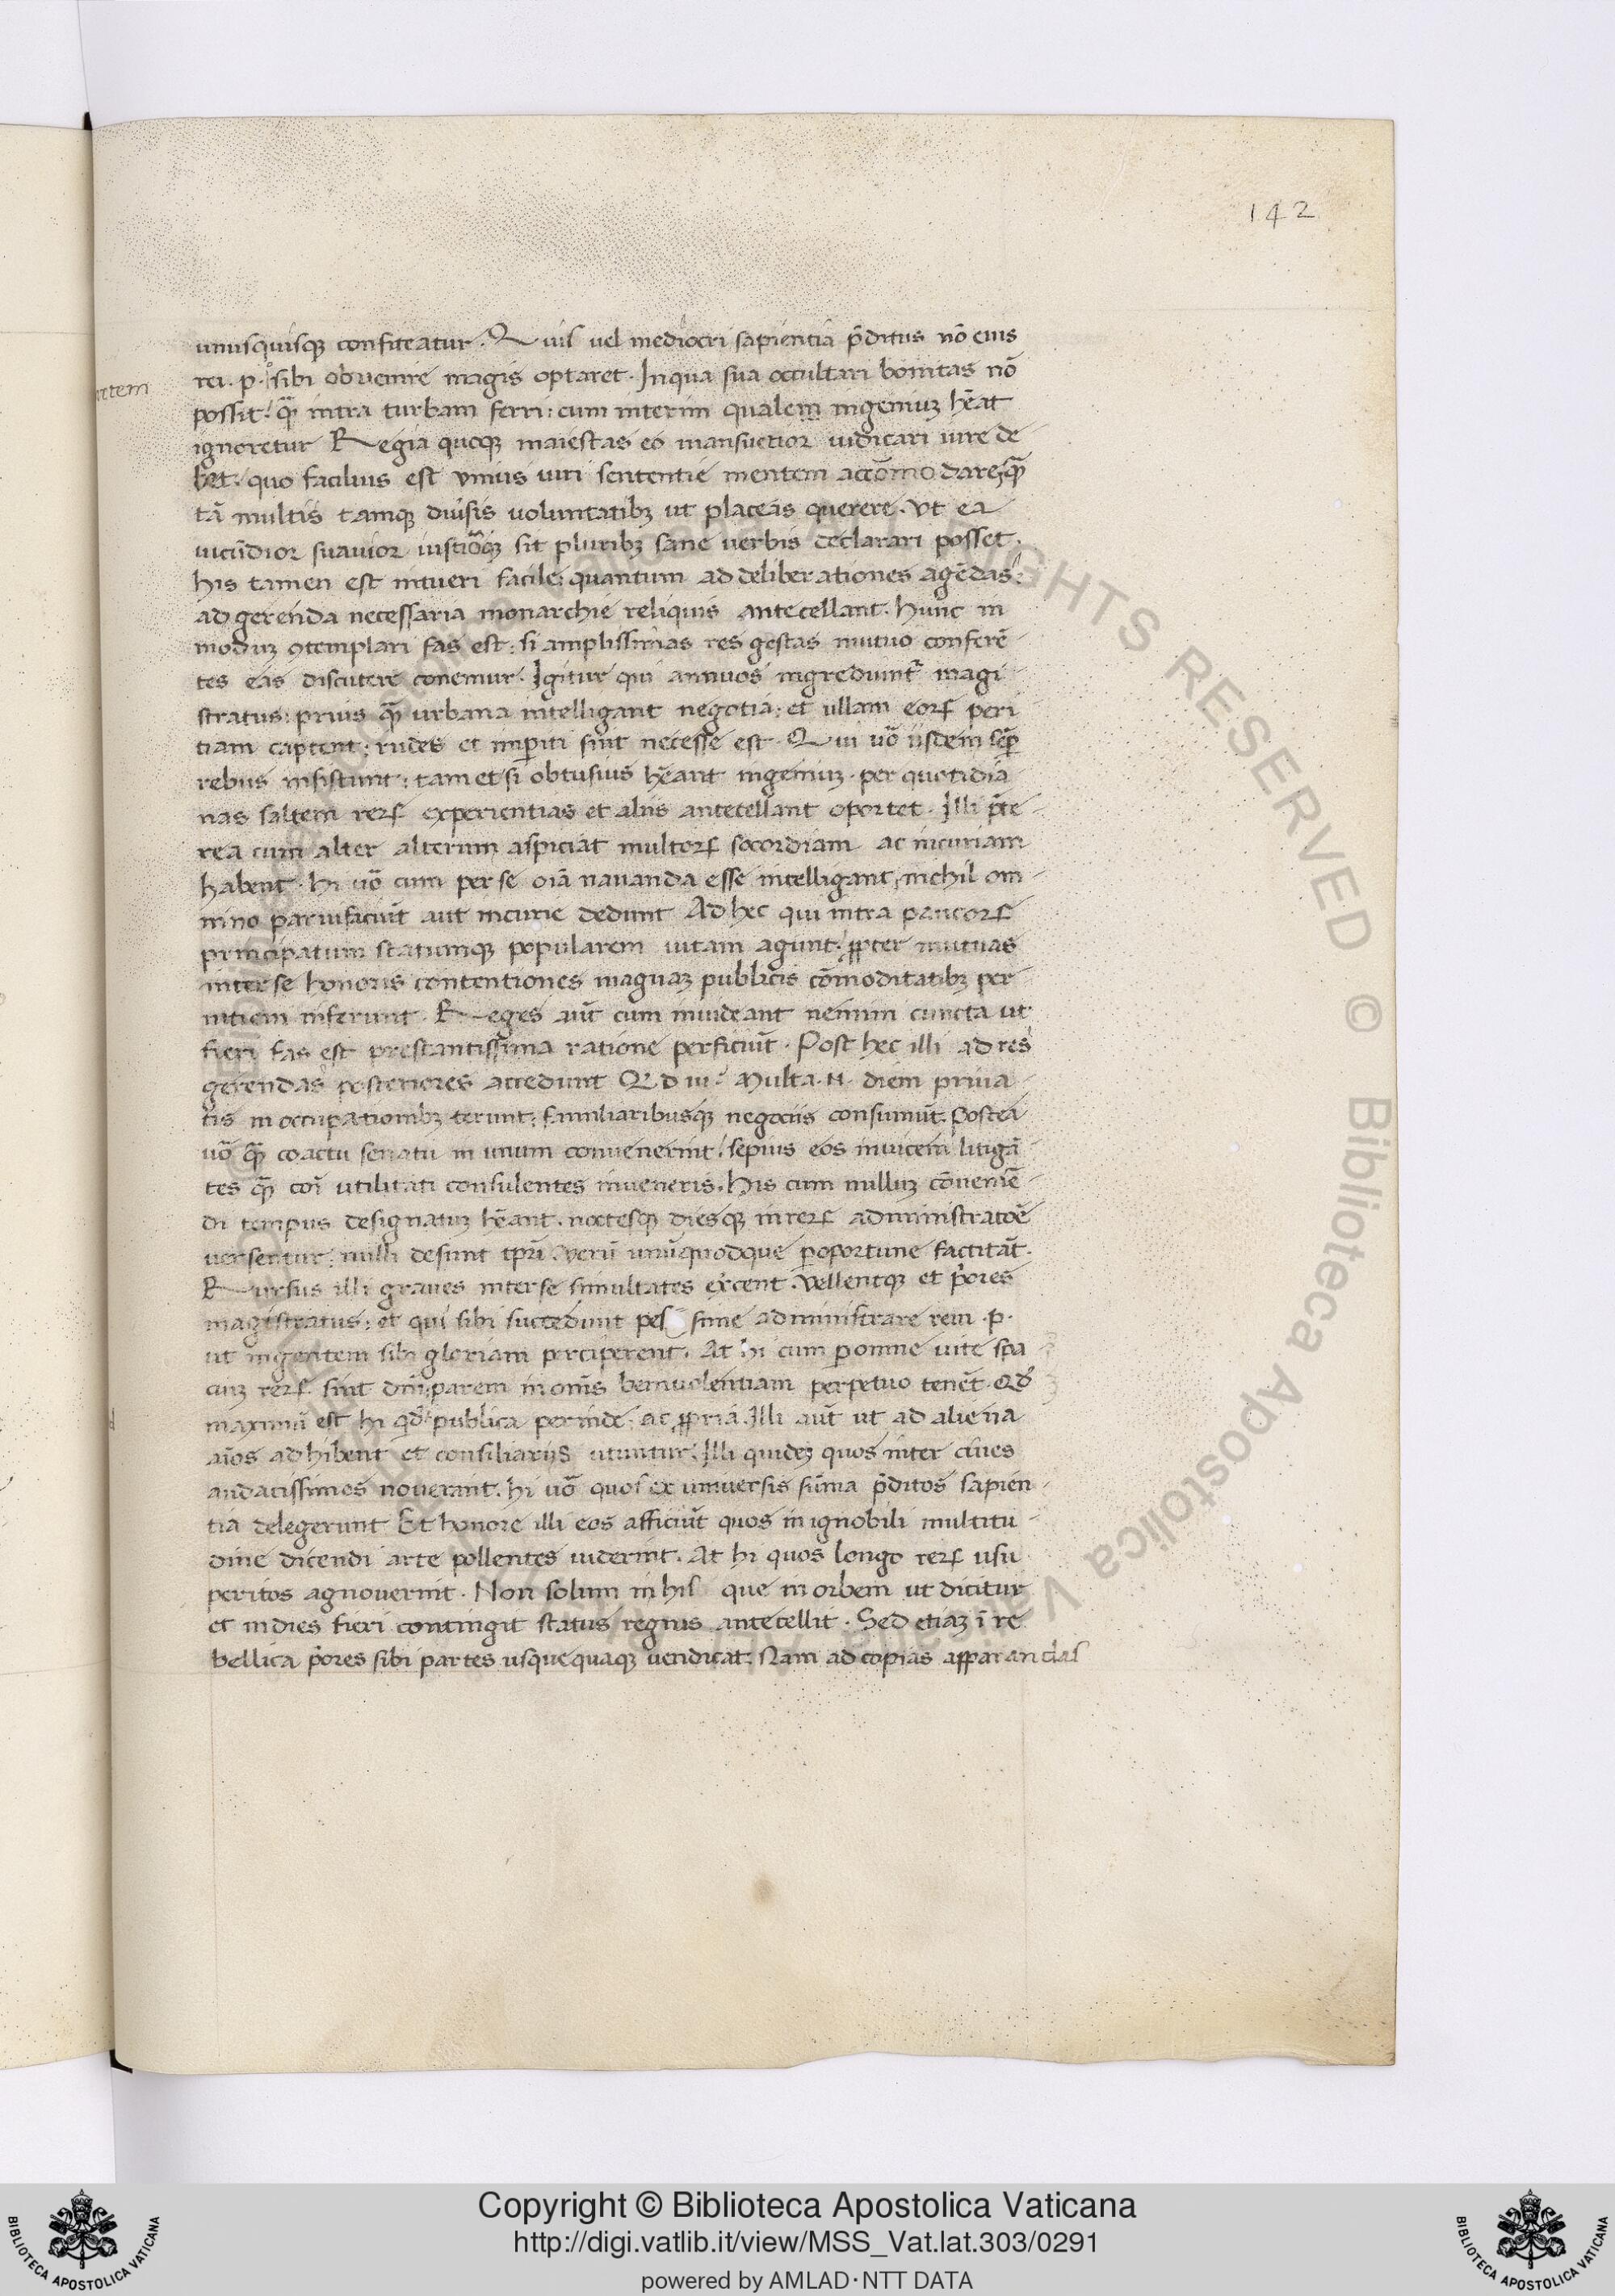 142
unusquisqꝫ confiteatur. Quis vel mediocri sapientia p̄ditus nō eius
rei .p. sibi obvenire magis optaret. In qua sua occultari bonitas nō
possit: qꝫ̄ intra turbam ferri: cum interim qualem ingeniuꝫ hēat
ignoretur Regia quoqꝫ maiestas eo mansuetior iudicari iure de
bet: quo facilius est unius viri sententie mentem accōmodare, qꝫ̄
tā multis tamqꝫ diu͛sis voluntatibꝫ ut placeas querere. Ut ea
iucūdior suavior iustiōrqꝫ sit pluribꝫ sane verbis declarari posset.
his tamen est intueri facile: quantum ad deliberationes agēdas:
ad gerenda necessaria monarchie reliquis antecellant. Hunc in
moduꝫ ꝯtemplari fas est: si amplissimas res gestas mutuo conferē
tes eas discutere conemur. Igitur qui annuos ingrediunt᷑ magi
stratus: prius qꝫ̄ urbana intelligant negotia: et ullam eoꝝ peri
tiam captent: rudes et imꝑiti sint necesse est. Qui vō iisdem semꝑ
rebus insistunt: tamet si obtusius hēant ingeniuꝫ. per quotidia
nas saltem reꝝ experientias et aliis antecellant oportet. Illi p̄te
rea cum alter alterum aspiciat multoꝝ socordiam ac incuriam
habent. Hi vō cum per se oīa navanda esse intelligant, nichil om
nino parvifaciūt aut incurie dedunt Ad hec qui intra paucoꝝ
principatum statumqꝫ popularem vitam agunt: ꝓpter mutuas
inter se honoris contentiones magnaꝫ publicis cōmoditatibꝫ per
nitiem inferunt. Reges aūt cum invideant nemini cuncta ut
fieri fas est prestantissima ratione perficiūt. Post hec illi ad res
gerendas posteriores accedunt Multa .n. diem priva
tis in occupationibꝫ terunt: familiaribusqꝫ negociis consumūt. Postea
vō qꝫ̄ coactu senatu in unum convenerint: sepius eos invicem litigā
tes qꝫ̄ coī utilitati consulentes inveneris. His cum nulluꝫ cōveniē
di tempus designatuꝫ hēant. noctesqꝫ diesqꝫ in reꝝ administratōe
versentur: nulli desunt tp̄ri. verū unūquodque ꝑoportune factitāt.
Rursus illi graves inter se simultates ex͛cent. Vellentqꝫ et p͛ores
magistratus: et qui sibi succedunt pes sime administrare rem .p.
ut ingentem sibi gloriam perciperent. At hi cum ꝑ omne vite spa
ciuꝫ reꝝ sint dn̄i: parem in omīs benivolentiam perpetuo tenēt. Qd̓
maximū est hi qd̓ publica perinde ac ꝓpria. Illi aūt ut ad aliena
aīos adhibent et consiliariis utuntur: Illi quideꝫ quos inter cives
audacissimos noverint. hi vō quos ex universis sūma p̄ditos sapien
tia delegerunt Et honore illi eos afficiūt quos in ignobili multitu
dine dicendi arte pollentes viderint. At hi quos longo reꝝ usu
peritos agnoverint. Non solum in his que in orbem ut dicitur
et indies fieri contingit status regius antecellit. Sed etiaꝫ ī re
bellica p͛ores sibi partes usquequaqꝫ vendicat. Nam ad copias apparandas
Copyright © Biblioteca Apostolica Vaticana
http://digi.vatlib.it/view/MSS_Vat.lat.303/0291
powered by AMLAD·NTT DATA